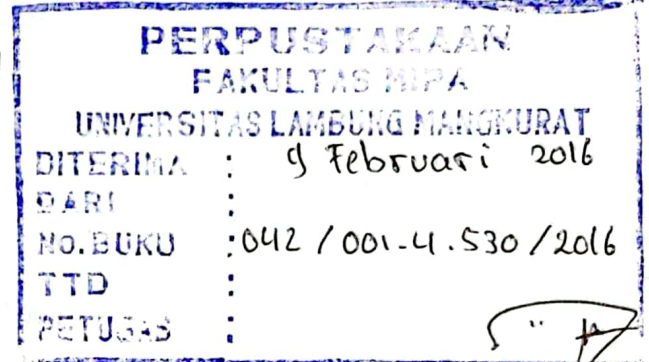 PERPUSTAKAAN
FAKULTAS MIPA
UNIVERSITAS LAMBUNG MANGKURAT
DITERIMA : 9 Februari 2016
DARI :
NO. BUKU : 042 / 001-4.530 / 2016
TTD :
PETUGAS :